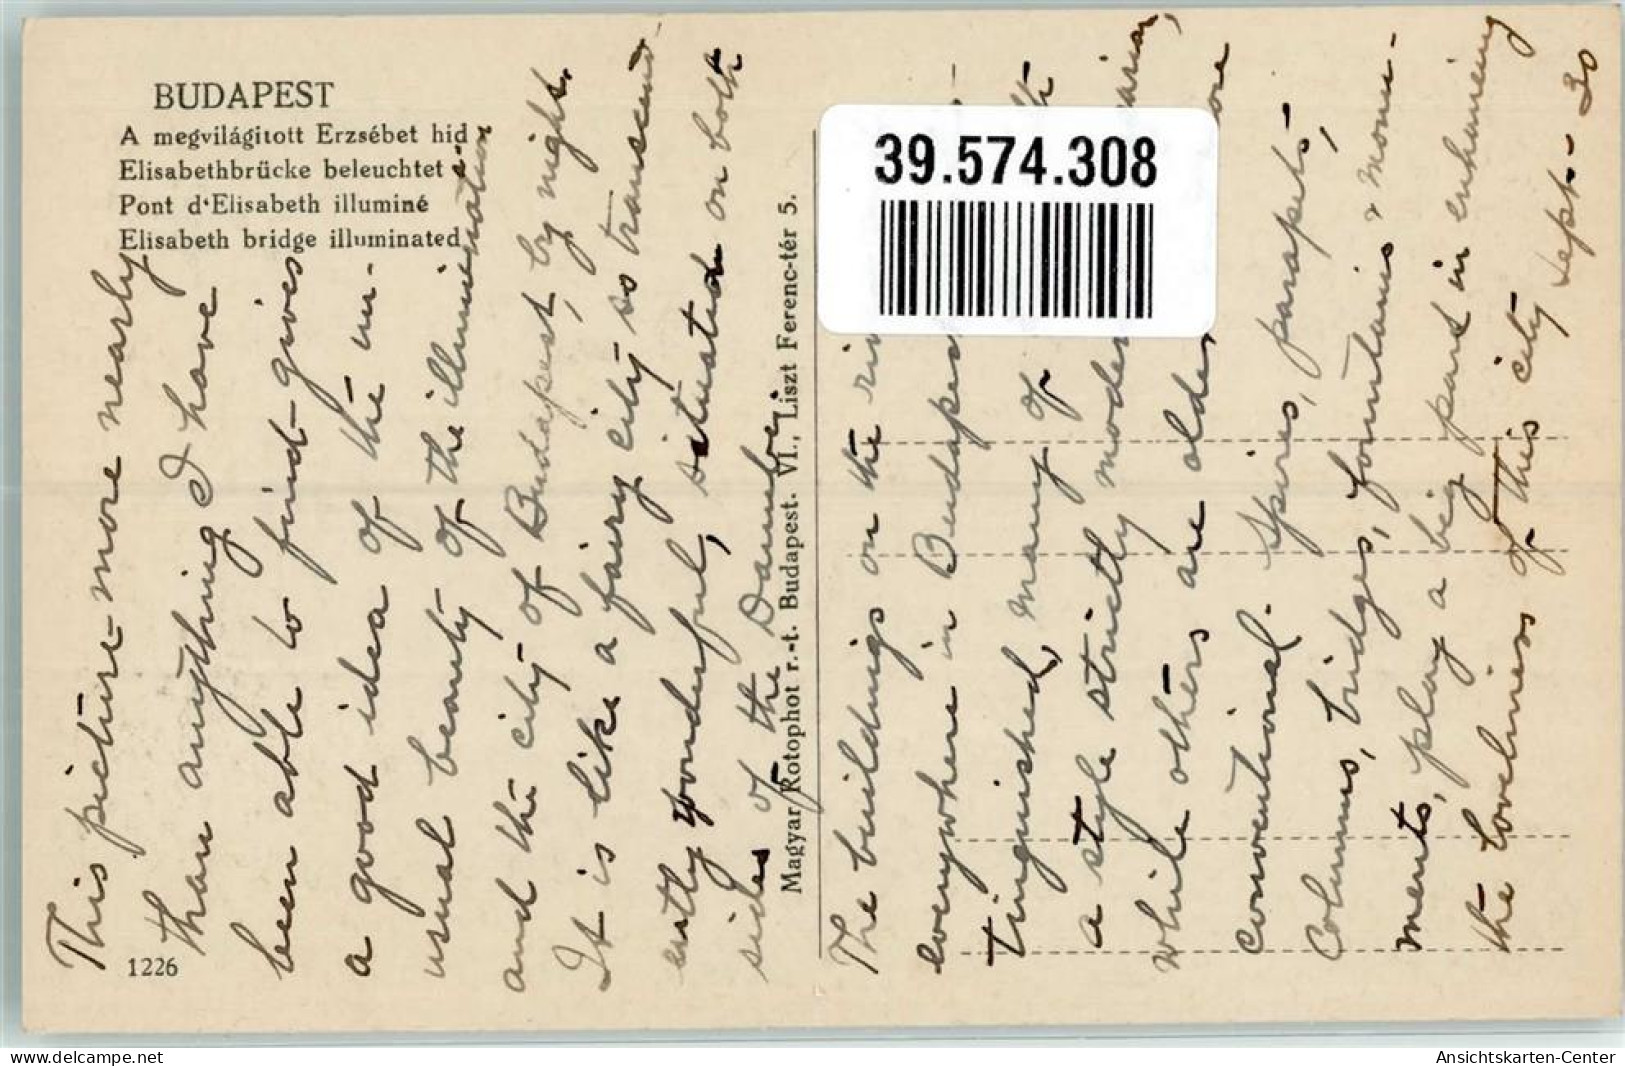 BUDAPEST
A megvilágitott Erzsébet hid
Elisabethbrücke beleuchtet
Pont d'Elisabeth illuminé
Elisabeth bridge illuminated
1226
Magyar Rotophot r.-t. Budapest. VI., Liszt Ferenc-tér 5.
39.574.308
This picture - more nearly
than anything I have
been able to find - gives
a good idea of the un-
usual beauty of the illumination
and the city of Budapest, by night.
It is like a fairy city, so transcend-
ently wonderful, situated on both
sides of the Danube.
The buildings on the
everywhere in Budapest
tinguished, many of
a style strictly
while others are
conventional. Spires, parapets,
columns, bridges, fountains & monu-
ments, play a big part in enhancing
the loveliness of this city
Sept - 30
delcampe.net
Ansichtskarten-Center